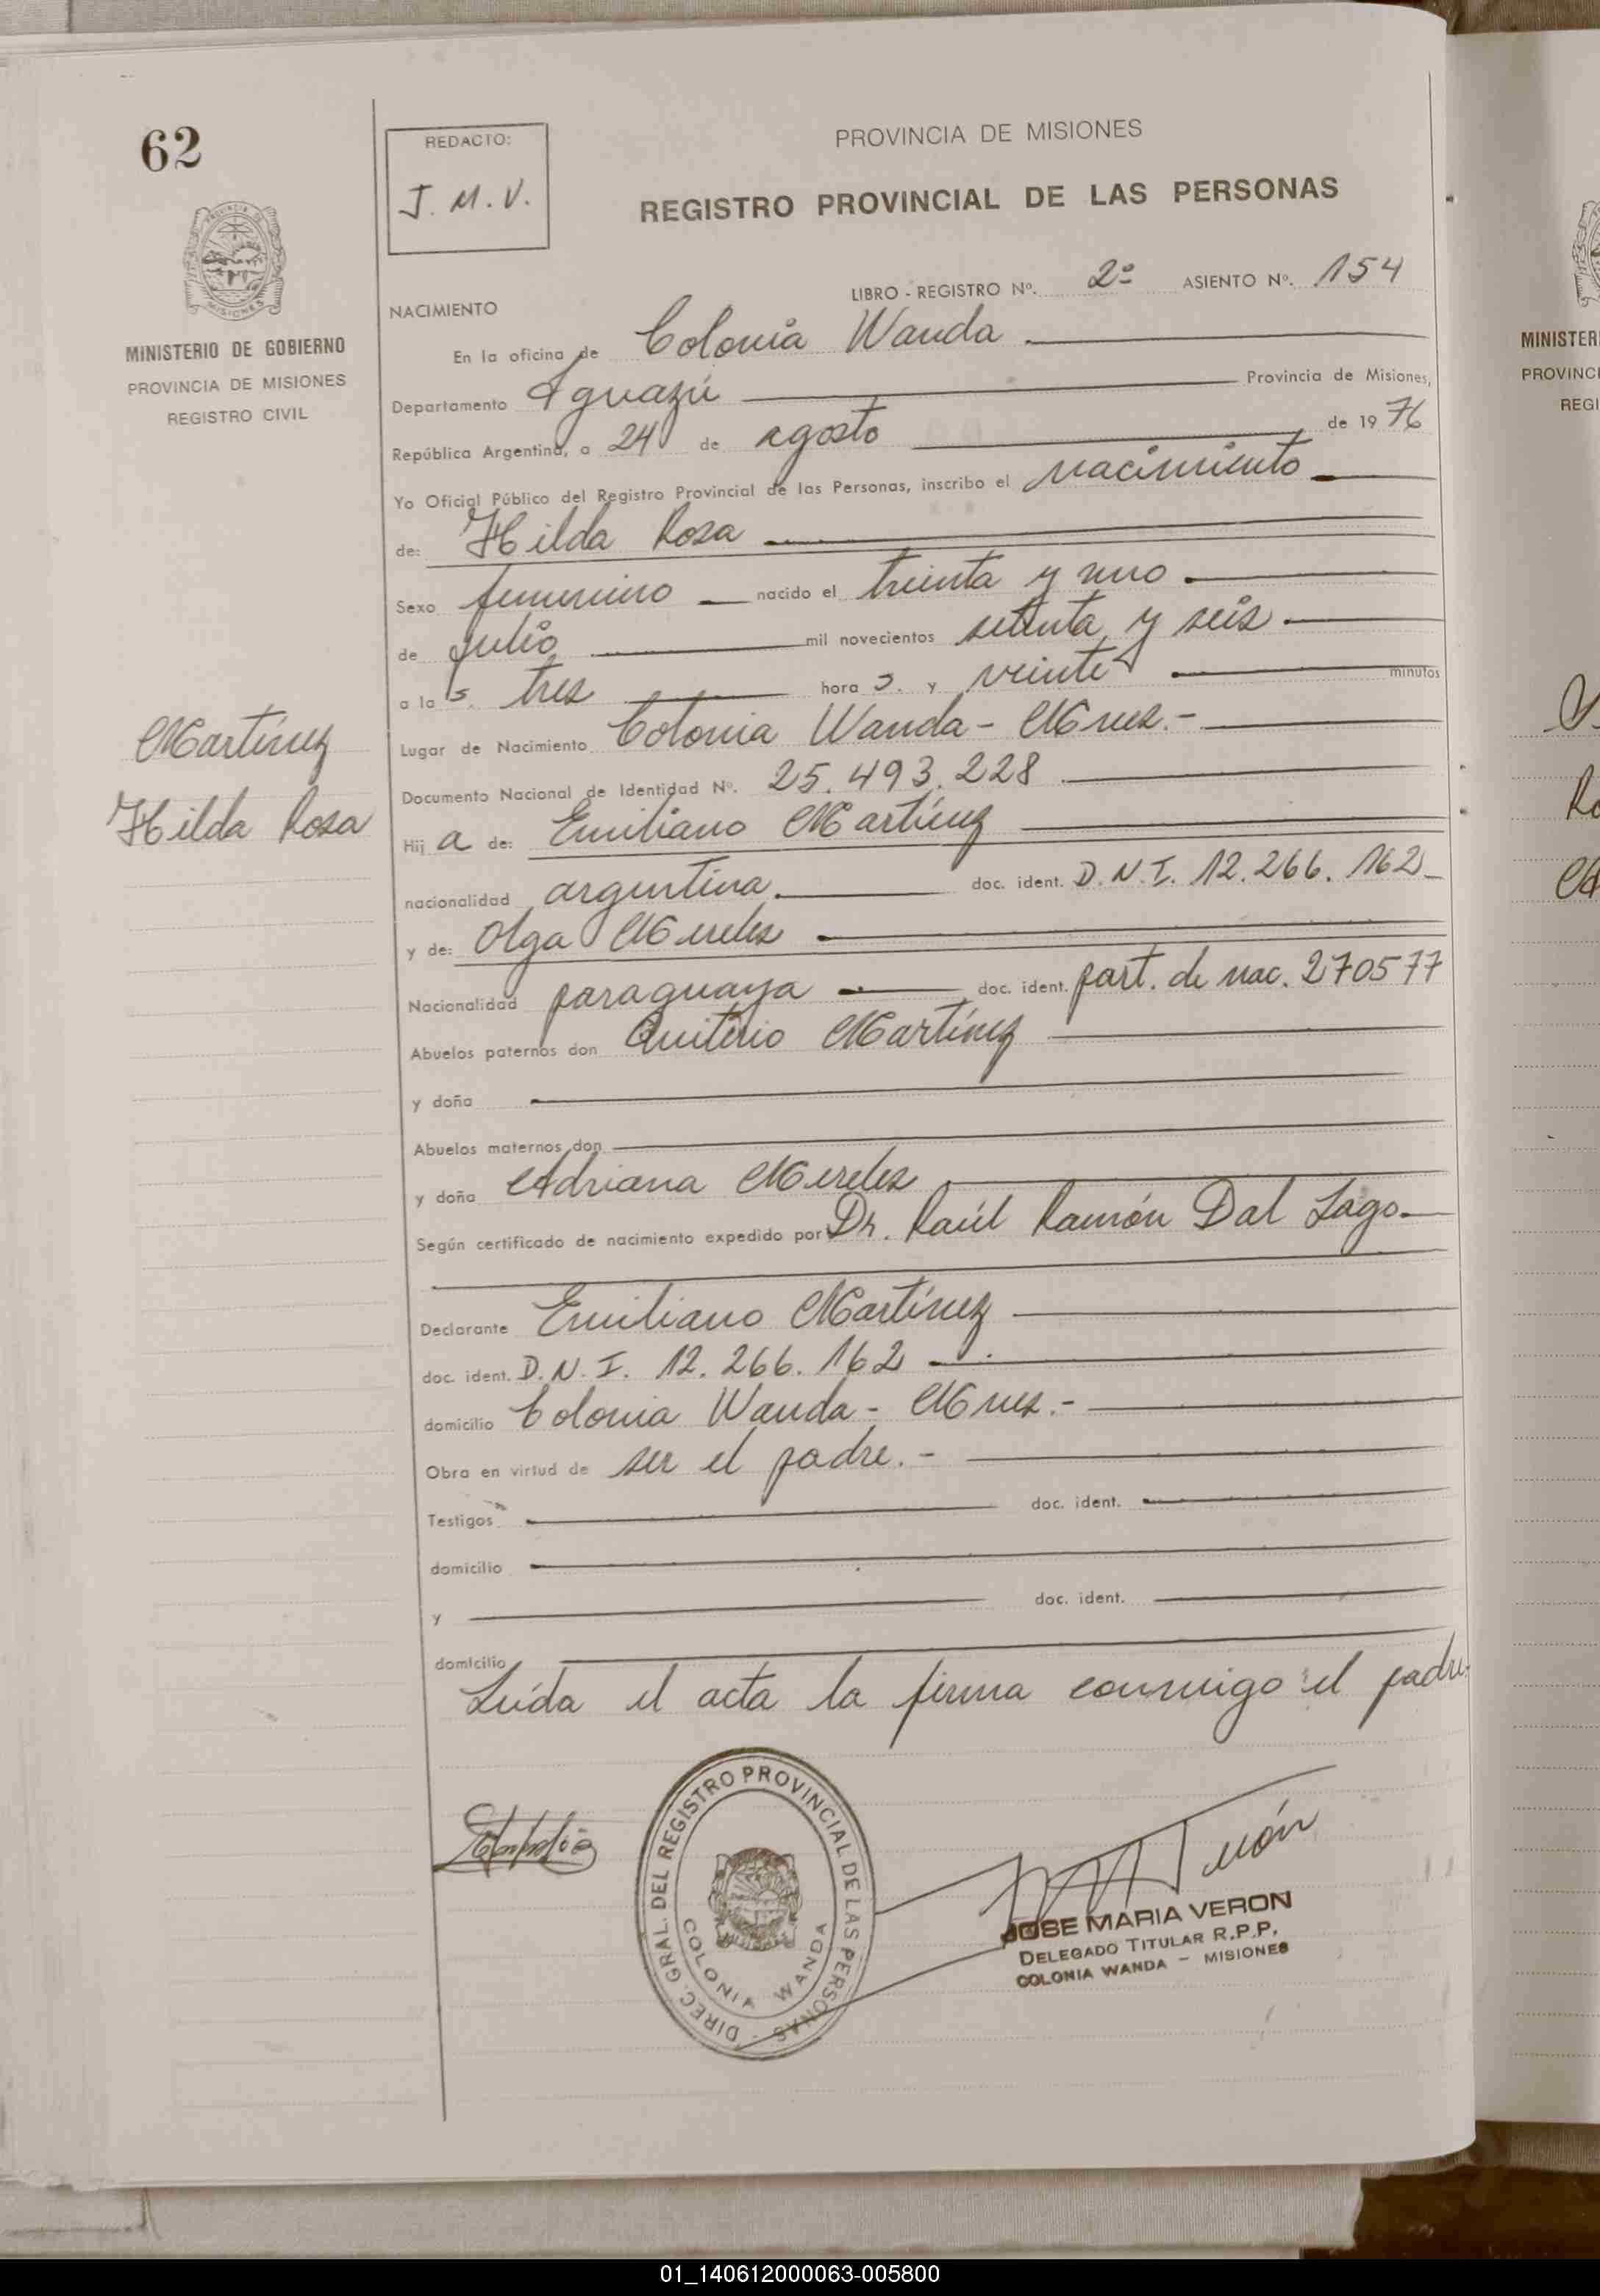 62
REDACTO:
J. M. V.
PROVINCIA DE MISIONES
REGISTRO PROVINCIAL DE LAS PERSONAS
PROVINCIA DE
MISIONES
MINISTERIO DE GOBIERNO
PROVINCIA DE MISIONES
REGISTRO CIVIL
LIBRO - REGISTRO Nº. 2º ASIENTO Nº. 154
NACIMIENTO
En la oficina de Colonia Wanda
Departamento Iguazú Provincia de Misiones,
República Argentina, a 24 de agosto de 1976
Yo Oficial Público del Registro Provincial de las Personas, inscribo el nacimiento
de: Hilda Rosa
Sexo femenino nacido el treinta y uno
de julio mil novecientos setenta y seis
a la s. tres hora s. y veinte minutos
Martínez
Hilda Rosa
Lugar de Nacimiento Colonia Wanda - Mnes.-
Documento Nacional de Identidad Nº. 25.493.228
Hij a de: Emiliano Martínez
nacionalidad argentina doc. ident. D.N.I. 12.266.162
y de: Olga Mereles
Nacionalidad paraguaya doc. ident. part. de nac. 270577
Abuelos paternos don Quiterio Martínez
y doña
Abuelos maternos don
y doña Adriana Mereles
Según certificado de nacimiento expedido por Dr. Raúl Ramón Dal Lago
Declarante Emiliano Martínez
doc. ident. D.N.I. 12.266.162
domicilio Colonia Wanda - Mnes.-
Obra en virtud de ser el padre.-
Testigos doc. ident.
domicilio
y doc. ident.
domicilio
Leída el acta la firma conmigo el padre.
DIREC. GRAL. DEL REGISTRO PROVINCIAL DE LAS PERSONAS -
COLONIA WANDA
JOSE MARIA VERON
DELEGADO TITULAR R.P.P.
COLONIA WANDA - MISIONES
MINISTER
PROVINCI
REGI
Ro
01_140612000063-005800